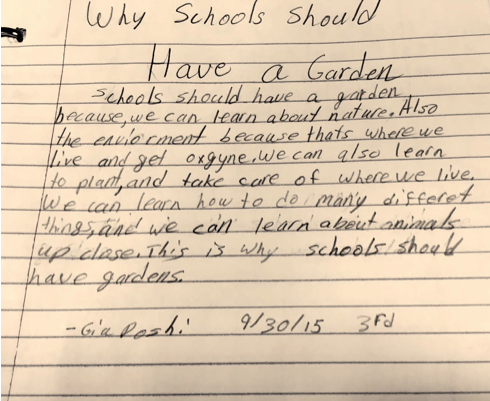 Why Schools Should
Have a Garden
Schools should have a garden
because, we can learn about nature. Also
the enviorment because thats where we
live and get oxgyne. We can also learn
to plant, and take care of where we live.
We can learn how to do many differet
things, and we can learn about animals
up close. This is why schools should
have gardens.
-Gia Doshi 9/30/15 3rd